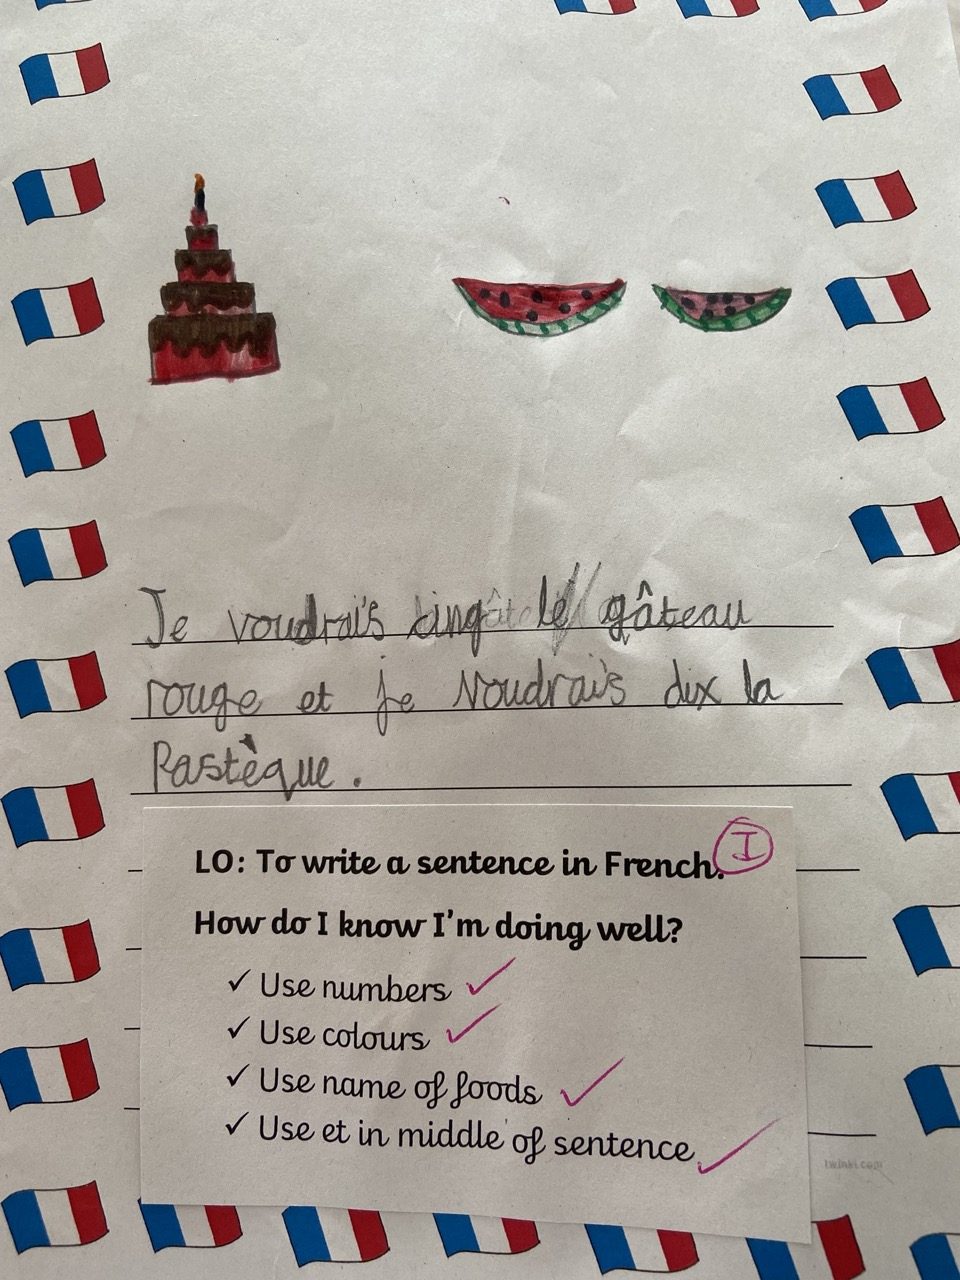 Je voudrais cinq le gâteau
rouge et je voudrais dix la
Pastèque.
I
LO: To write a sentence in French.
How do I know I'm doing well?
✓ Use numbers ✓
✓ Use colours ✓
✓ Use name of foods ✓
✓ Use et in middle of sentence ✓
twinkl.com